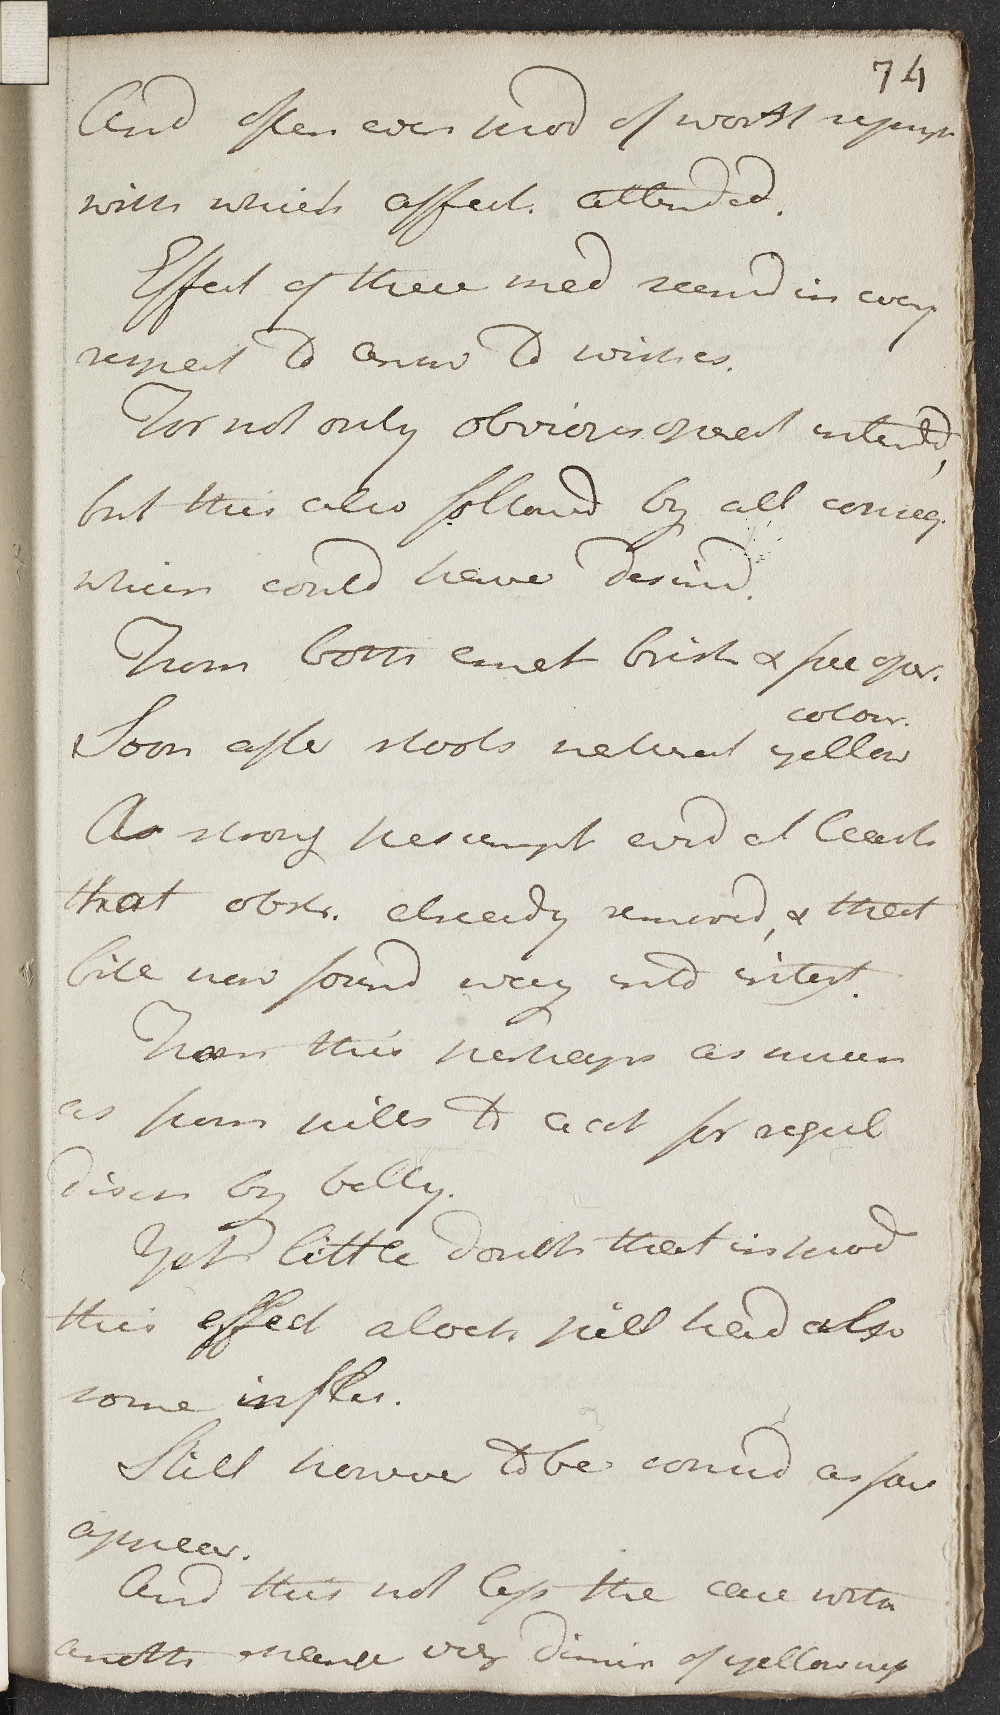 74
And often even prod of worst sympt
with which affect. attended.
Effect of these med seemd in every
respect to answ to wishes.
For not only obvious operat intended,
but this also followd by all conseq.
which could have desird.
From both emet brisk & free oper.
colour.
Soon after stools natural yellow
As strong presumpt evid at least
that obstr. already removd, & that
bile now found way into intest.
From this perhaps as much
as from pills to acct for regul
disch by belly.
Yet little doubt that in prod
this effect aloet pill had also
some influ.
Still however to be contind as far
appear.
And this not less the case with
anoth change viz dimin of yellowness